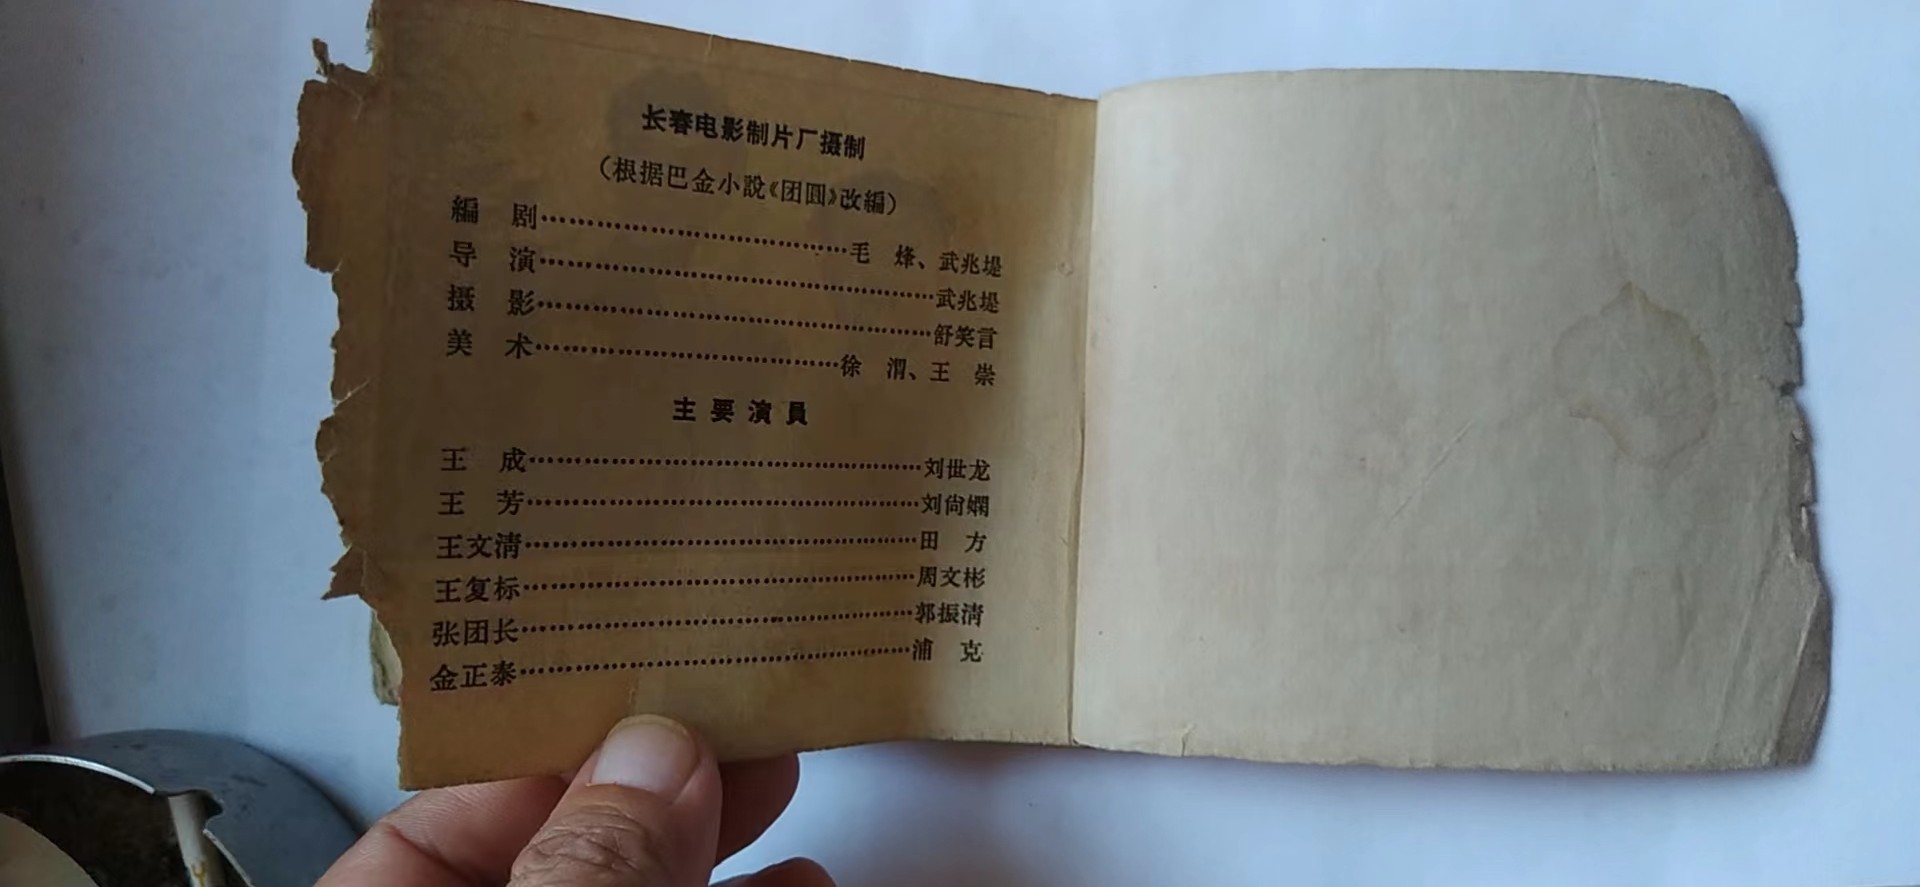 长春电影制片厂摄制
（根据巴金小說《团圓》改編）
編 剧……………………………毛 烽、武兆堤
导 演……………………………武兆堤
摄 影……………………………舒笑言
美 术……………………………徐 渭、王 崇
主要演員
王 成……………………………刘世龙
王 芳……………………………刘尙嫻
王文淸……………………………田 方
王复标……………………………周文彬
张团长……………………………郭振淸
金正泰……………………………浦 克